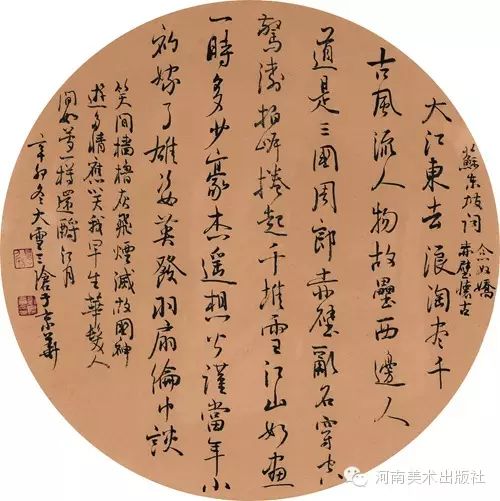 蘇東坡詞
念奴嬌
赤壁懷古
大江東去浪淘尽千
古風流人物故壘西邊人
道是三國周郎赤壁亂石穿空
驚濤拍岸捲起千堆雪江山如畫
一時多少豪杰遙想公瑾當年小
初嫁了雄姿英發羽扇綸巾談
笑間檣櫓灰飛煙滅故國神
遊多情應笑我早生華髮人
間如夢一樽還酹江月
辛卯冬大雪滄于京華
河南美术出版社